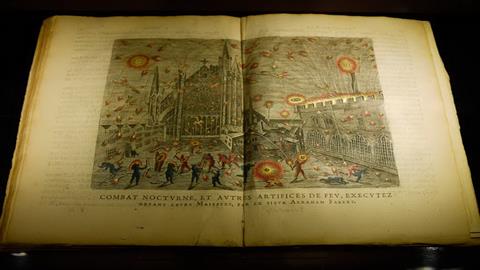 COMBAT NOCTVRNE, ET AVTRES ARTIFICES DE FEV, EXECVTEZ
DEVANT LEVRS MAIESTEZ, PAR LE SIEVR ABRAHAM FABERT.